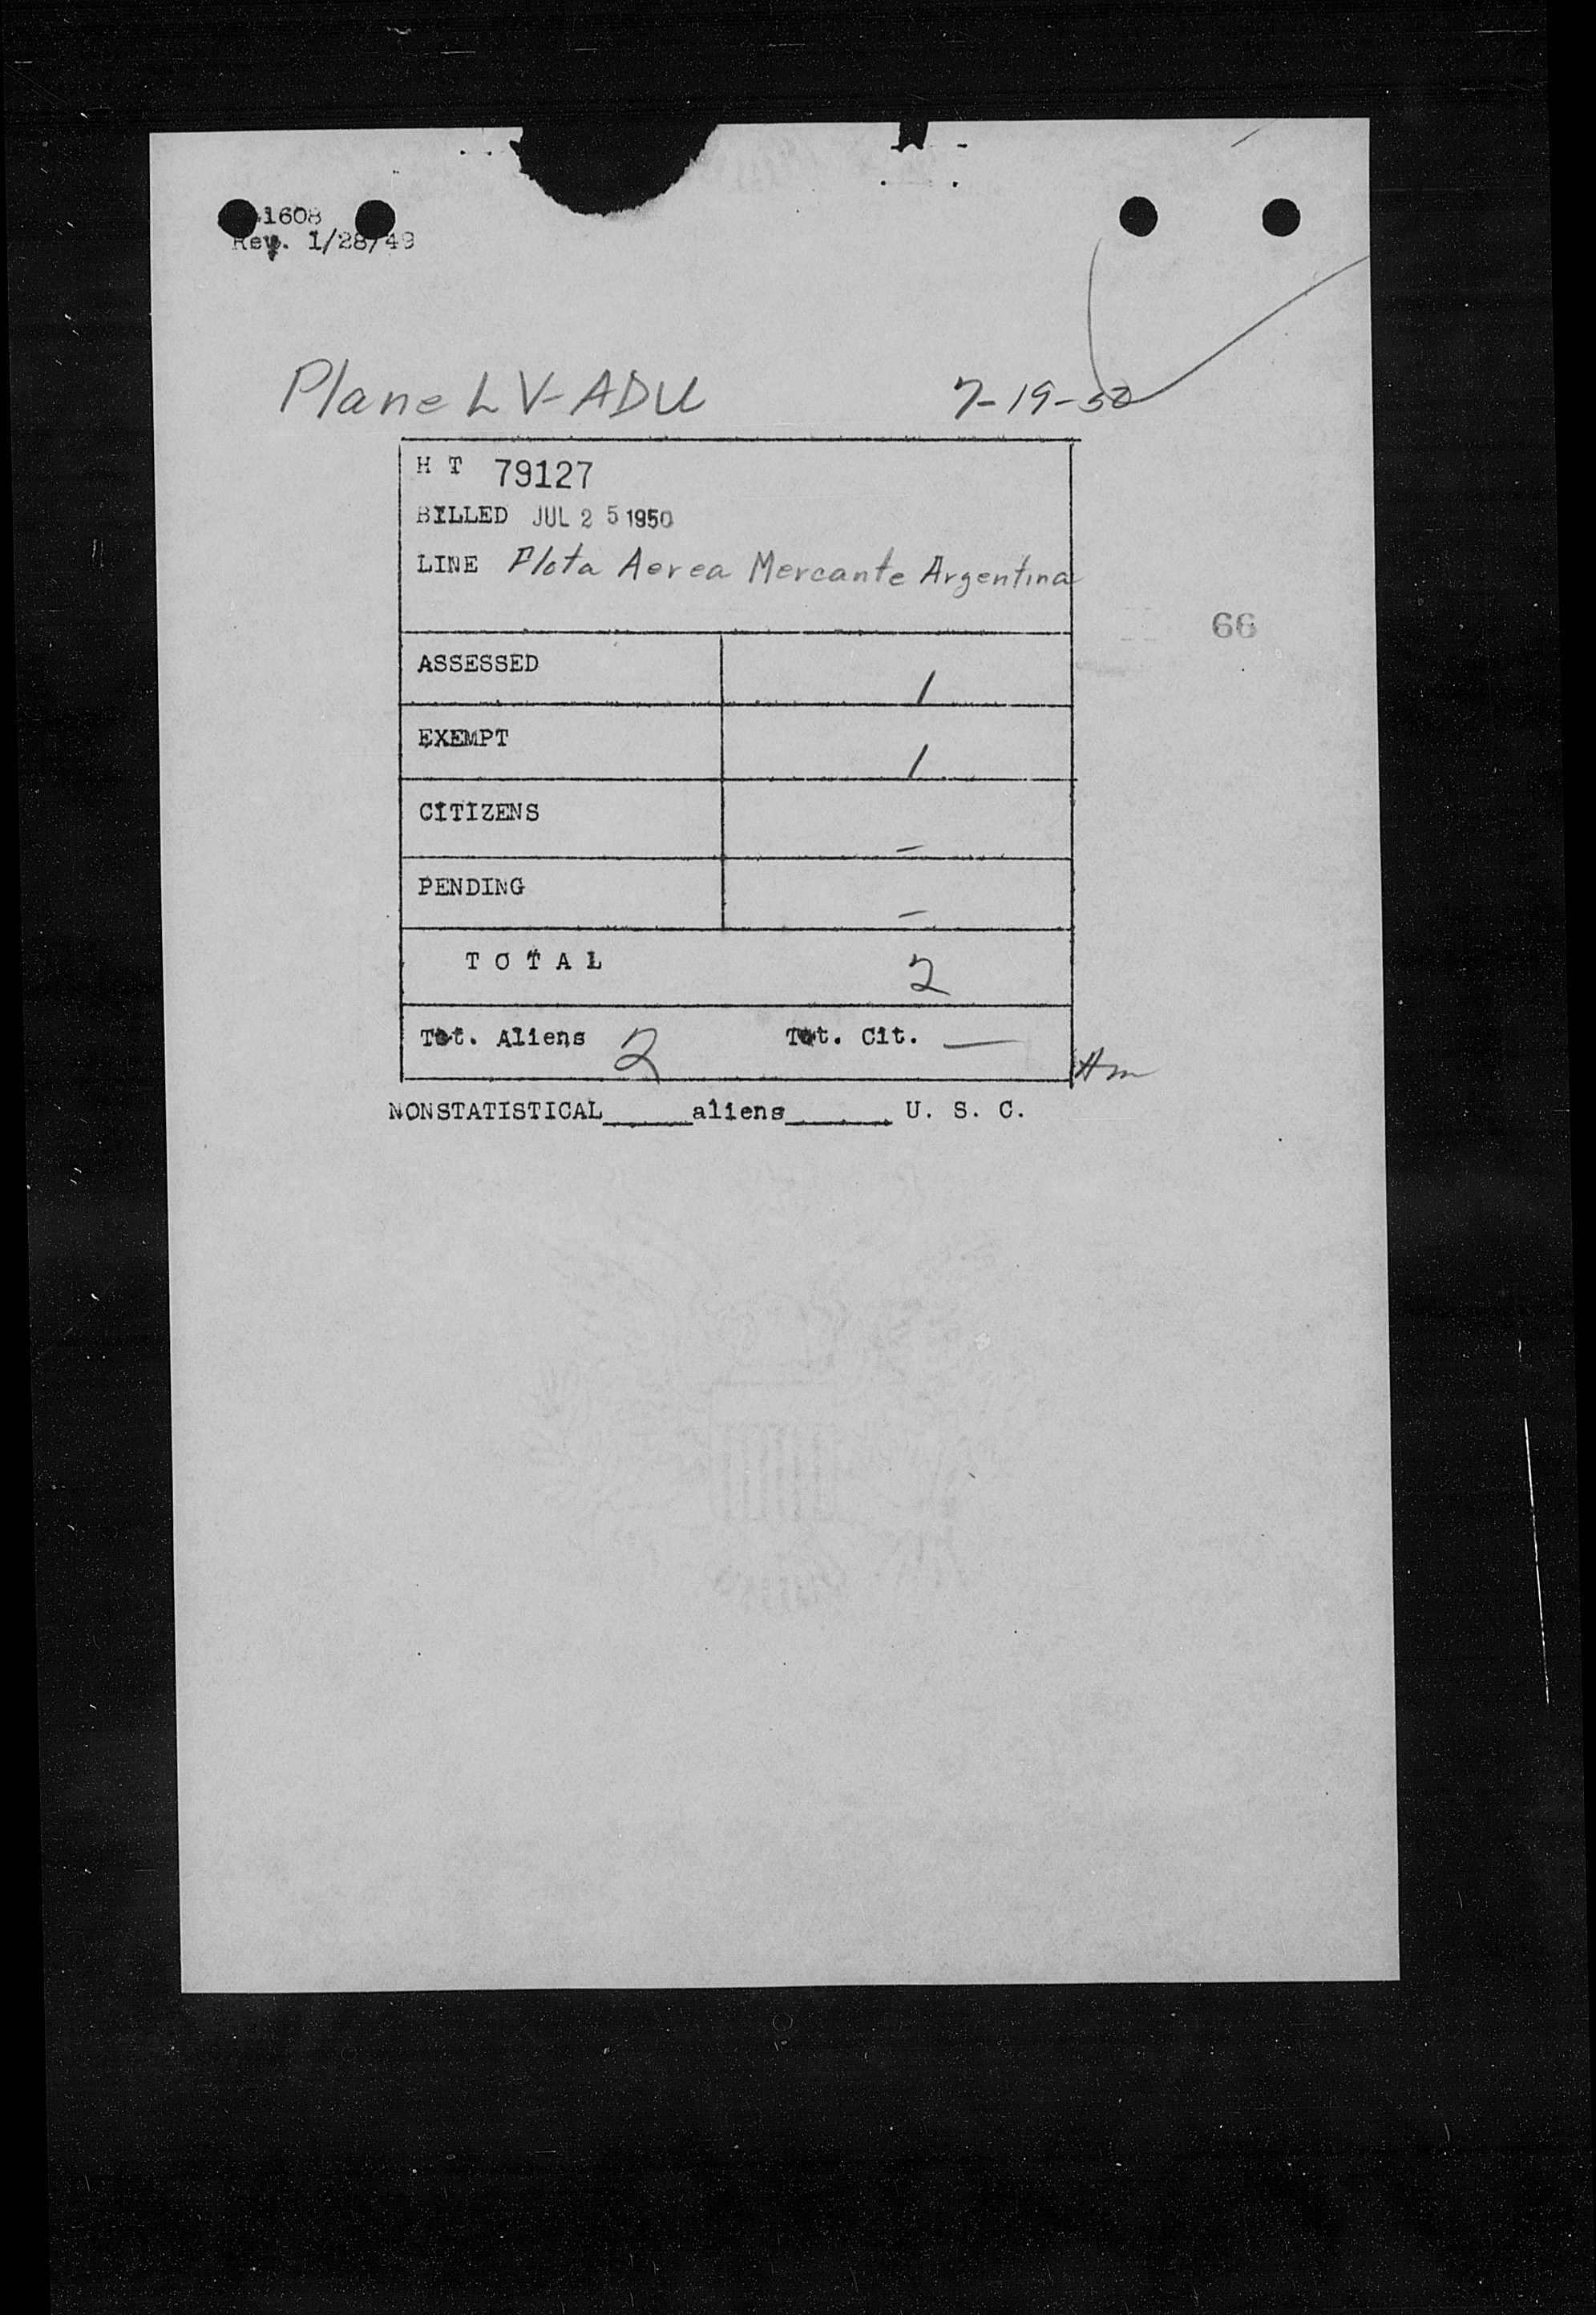 1608
Rev. 1/28/49
Plane LV-ADU 7-19-50
H T 79127
BILLED JUL 25 1950
LINE Flota Aerea Mercante Argentina
66
ASSESSED 1
EXEMPT 1
CITIZENS –
PENDING –
TOTAL 2
Tot. Aliens 2 Tot. Cit. —
NONSTATISTICAL_____aliens______ U. S. C.